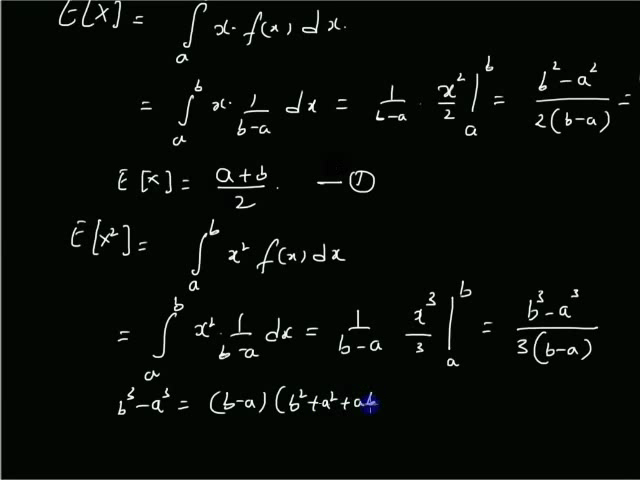 E[X] = ∫ₐ x · f(x) dx.
= ∫ₐᵇ x · 1/(b-a) dx = 1/(b-a) · x²/2 |ₐᵇ = (b² - a²)/(2(b-a)) =
E[X] = (a+b)/2 . — ①
E[X²] = ∫ₐᵇ x² f(x) dx
= ∫ₐᵇ x² · 1/(b-a) dx = 1/(b-a) x³/3 |ₐᵇ = (b³ - a³)/(3(b-a))
b³ - a³ = (b-a) (b² + a² + ab